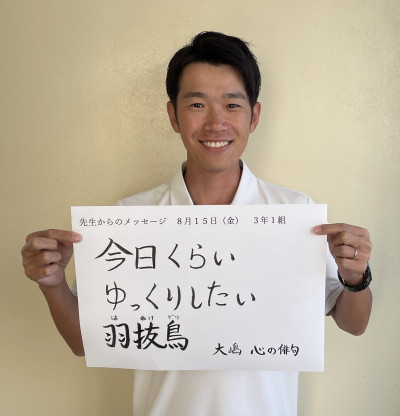 先生からのメッセージ　8月15日（金）　3年1組
今日くらい
ゆっくりしたい
は ぬけ どり
羽抜鳥
大嶋 心の俳句